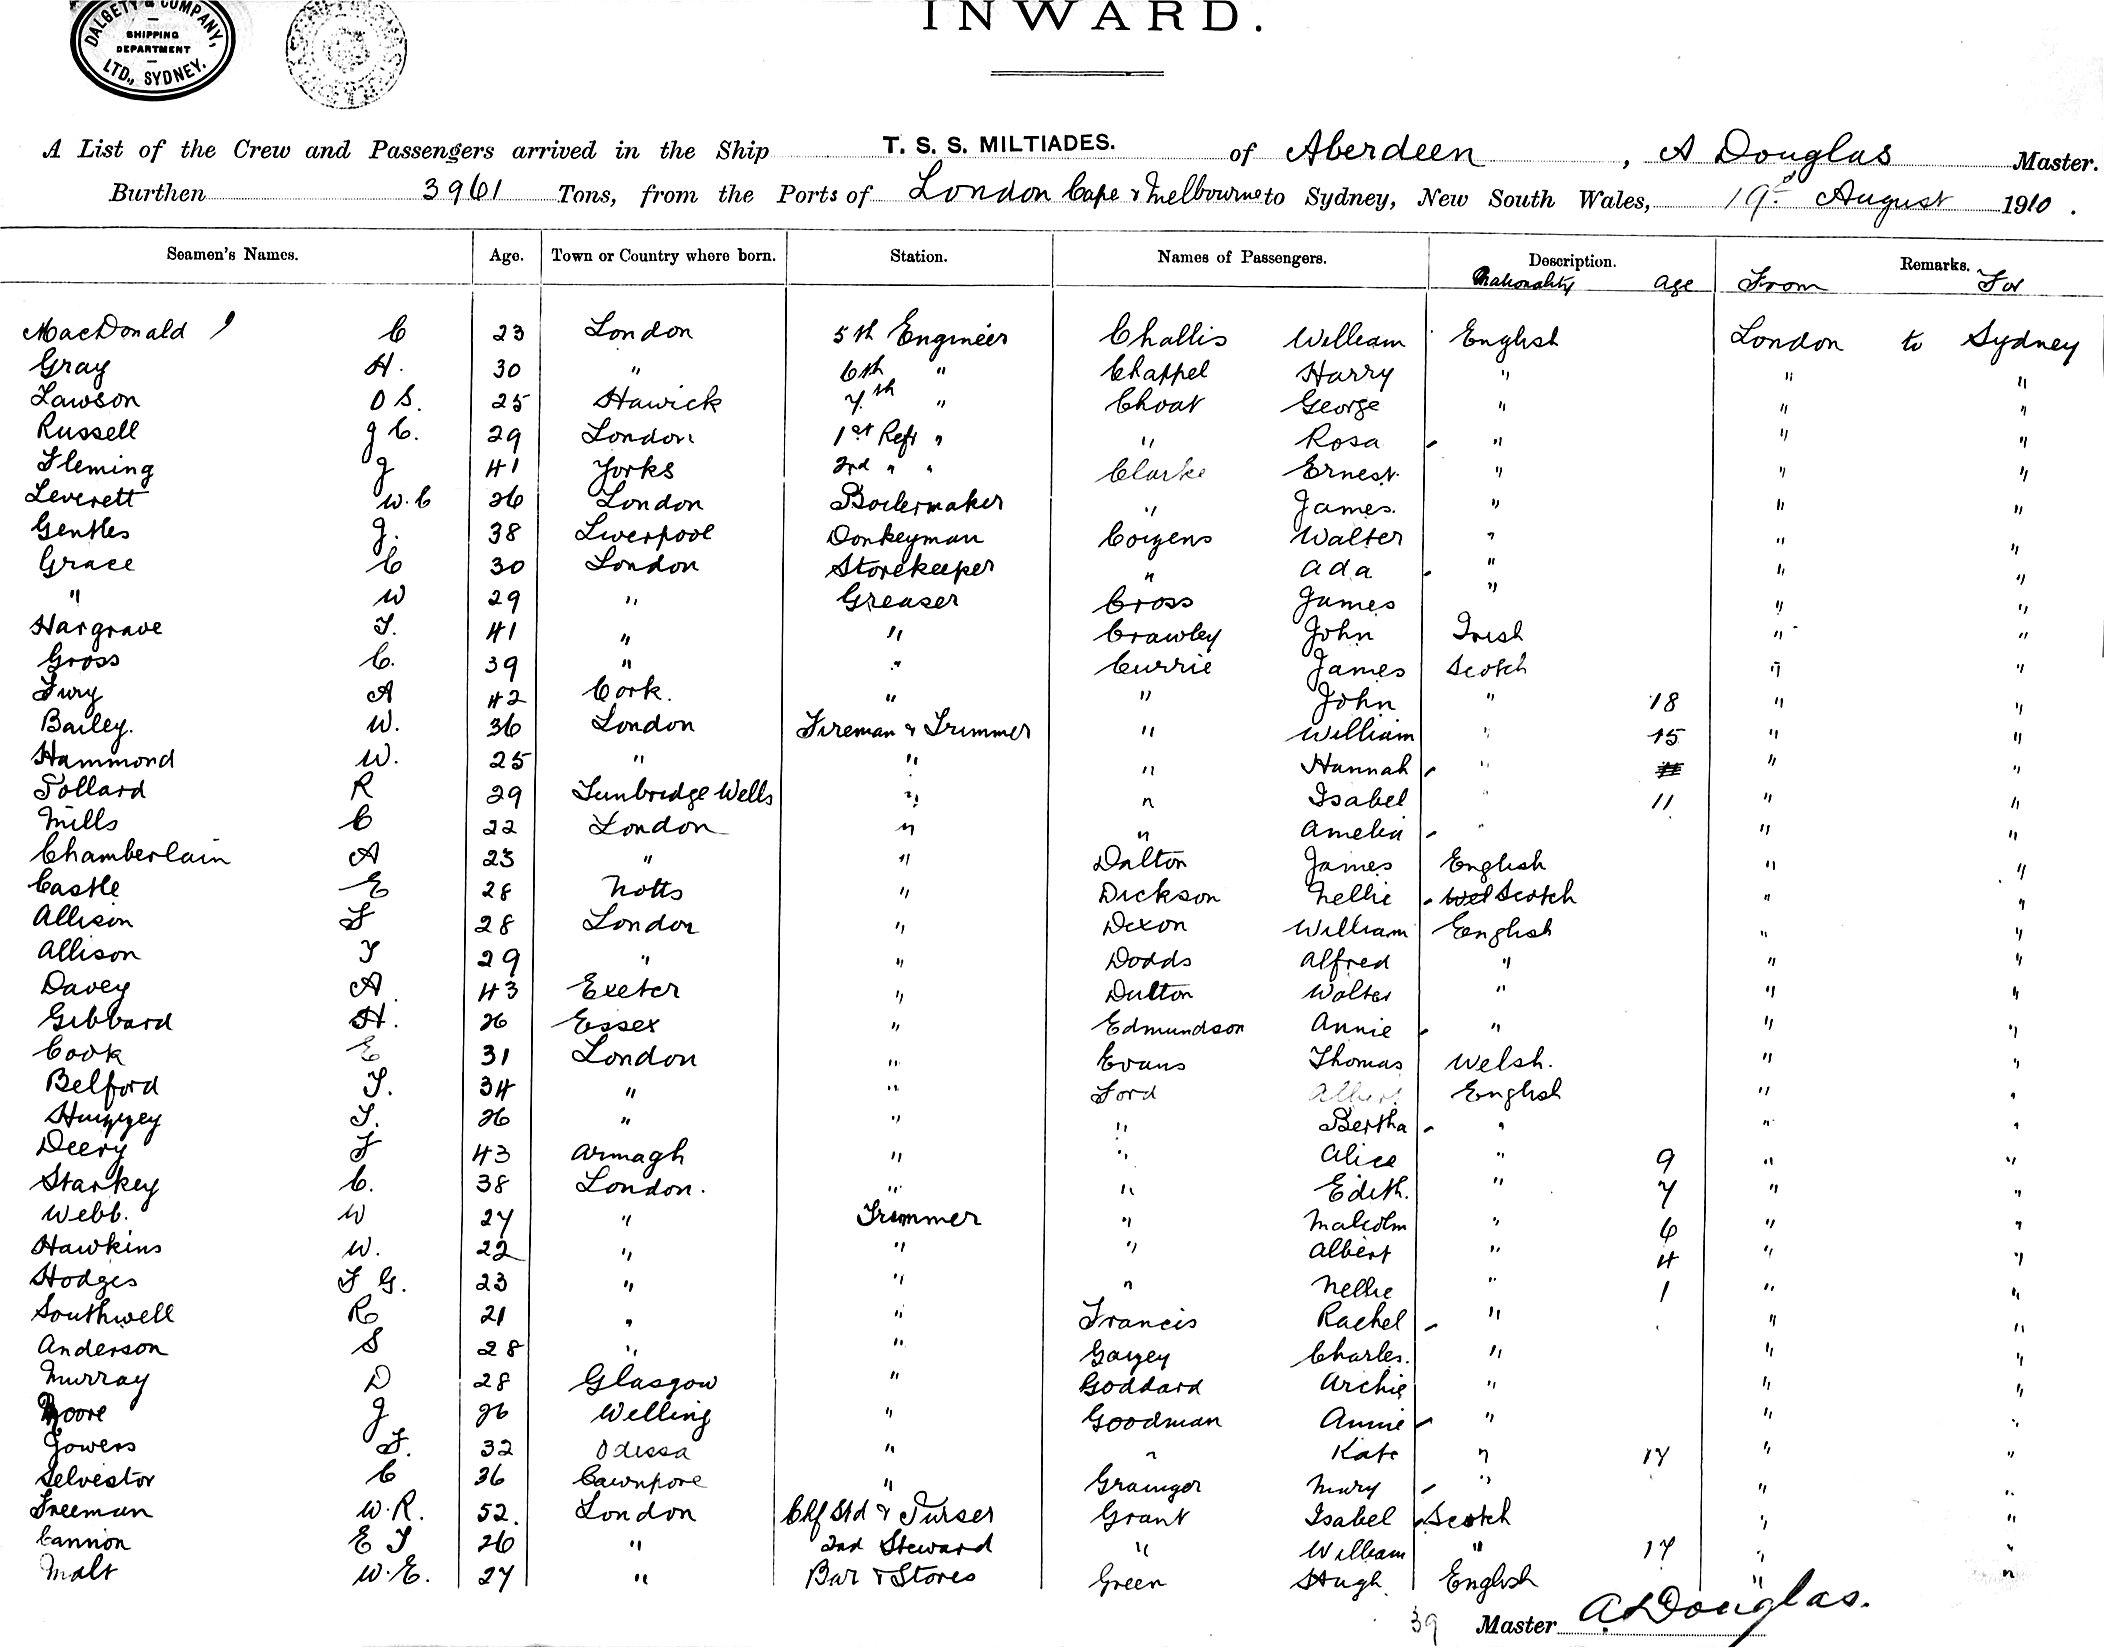 DALGETY & COMPANY, LTD., SYDNEY.
SHIPPING DEPARTMENT
INWARD.
A List of the Crew and Passengers arrived in the Ship T. S. S. MILTIADES. of Aberdeen, A Douglas Master.
Burthen 3961 Tons, from the Ports of London Cape & Melbourne to Sydney, New South Wales, 19th August 1910.
Seamen's Names. Age. Town or Country where born. Station. Names of Passengers. Description. Remarks.
Nationality Age From For
MacDonald C 23 London 5th Engineer Challis William English London to Sydney
Gray H. 30 " 6th " Chappel Harry " " "
Lawson O S. 25 Hawick 7th " Choat George " " "
Russell J C. 29 London 1st Refr " " Rosa " " "
Fleming J 41 Yorks 2nd " " Clarke Ernest " " "
Leverett W. C 26 London Boilermaker " James. " " "
Gentles J. 38 Liverpool Donkeyman Cozens Walter " " "
Grace C 30 London Storekeeper " Ada " " "
" W 29 " Greaser Cross James " " "
Hargrave T. 41 " " Crawley John Irish " "
Gross C. 39 " " Currie James Scotch " "
Fury A 42 Cork. " " John " 18 " "
Bailey. W. 36 London Fireman & Trimmer " William " 15 " "
Hammond W. 25 " " " Hannah " " "
Tollard R 29 Tunbridge Wells " " Isabel " 11 " "
Mills C 22 London " " Amelia " " "
Chamberlain A 23 " " Dalton James English " "
Castle E 28 Notts " Dickson Nellie Wel Scotch " "
Allison F 28 London " Dixon William English " "
Allison T 29 " " Dodds Alfred " " "
Davey A 43 Exeter " Dutton Walter " " "
Gibbard H. 26 Essex " Edmundson Annie " " "
Cook E 31 London " Evans Thomas Welsh. " "
Belford T. 34 " " Ford Albert English " "
Huggey T. 26 " " " Bertha " " "
Deery F 43 Armagh " " Alice " 9 " "
Starkey C. 38 London. " " Edith. " 7 " "
Webb. W 27 " Trimmer " Malcolm " 6 " "
Hawkins W. 22 " " " Albert " 4 " "
Hodges F G. 23 " " " Nellie " 1 " "
Southwell R 21 " " Francis Rachel " " "
Anderson S 28 " " Gazey Charles. " " "
Murray D 28 Glasgow " Goddard Archie " " "
Moore J 26 Welling " Goodman Annie " " "
Jowers F. 32 Odessa " " Kate " 17 " "
Selvestor C 36 Cawnpore " Grainger Mary " " "
Freeman W. R. 52. London Chf Std & Purser Grant Isabel Scotch " "
Cannon E J 26 " 2nd Steward " William " 17 " "
Malt W. E. 27 " Bar & Stores Green Hugh English " "
39 Master A Douglas.